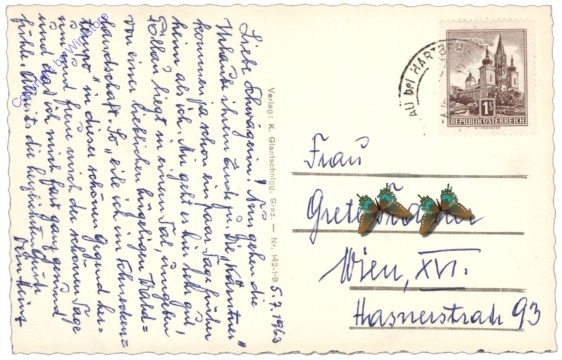 5.7.1963
Liebe Schwägerin! Nun gehen die
Urlaube ihrem Ende zu. Die "Kärntner"
kommen ja schon ein paar Tage früher
heim als ich. Mir geht es hier sehr gut,
Pöllau liegt in einem Tal, umgeben
von einer lieblichen hügeligen Wald=
landschaft. So "eile ich im Schnecken=
tempo" in dieser schönen Gegend her=
um und freue mich der schönen Tage
und daß ich mich fast ganz gesund
fühle. Allseits die herzlichsten Grüße
Dein
Verlag: K. Glantschnigg, Graz. — Nr. 142-1-9
AU bei HARTBERG
1S
REPUBLIK ÖSTERREICH
Frau
Wien, XVI.
Hasnerstraße 93